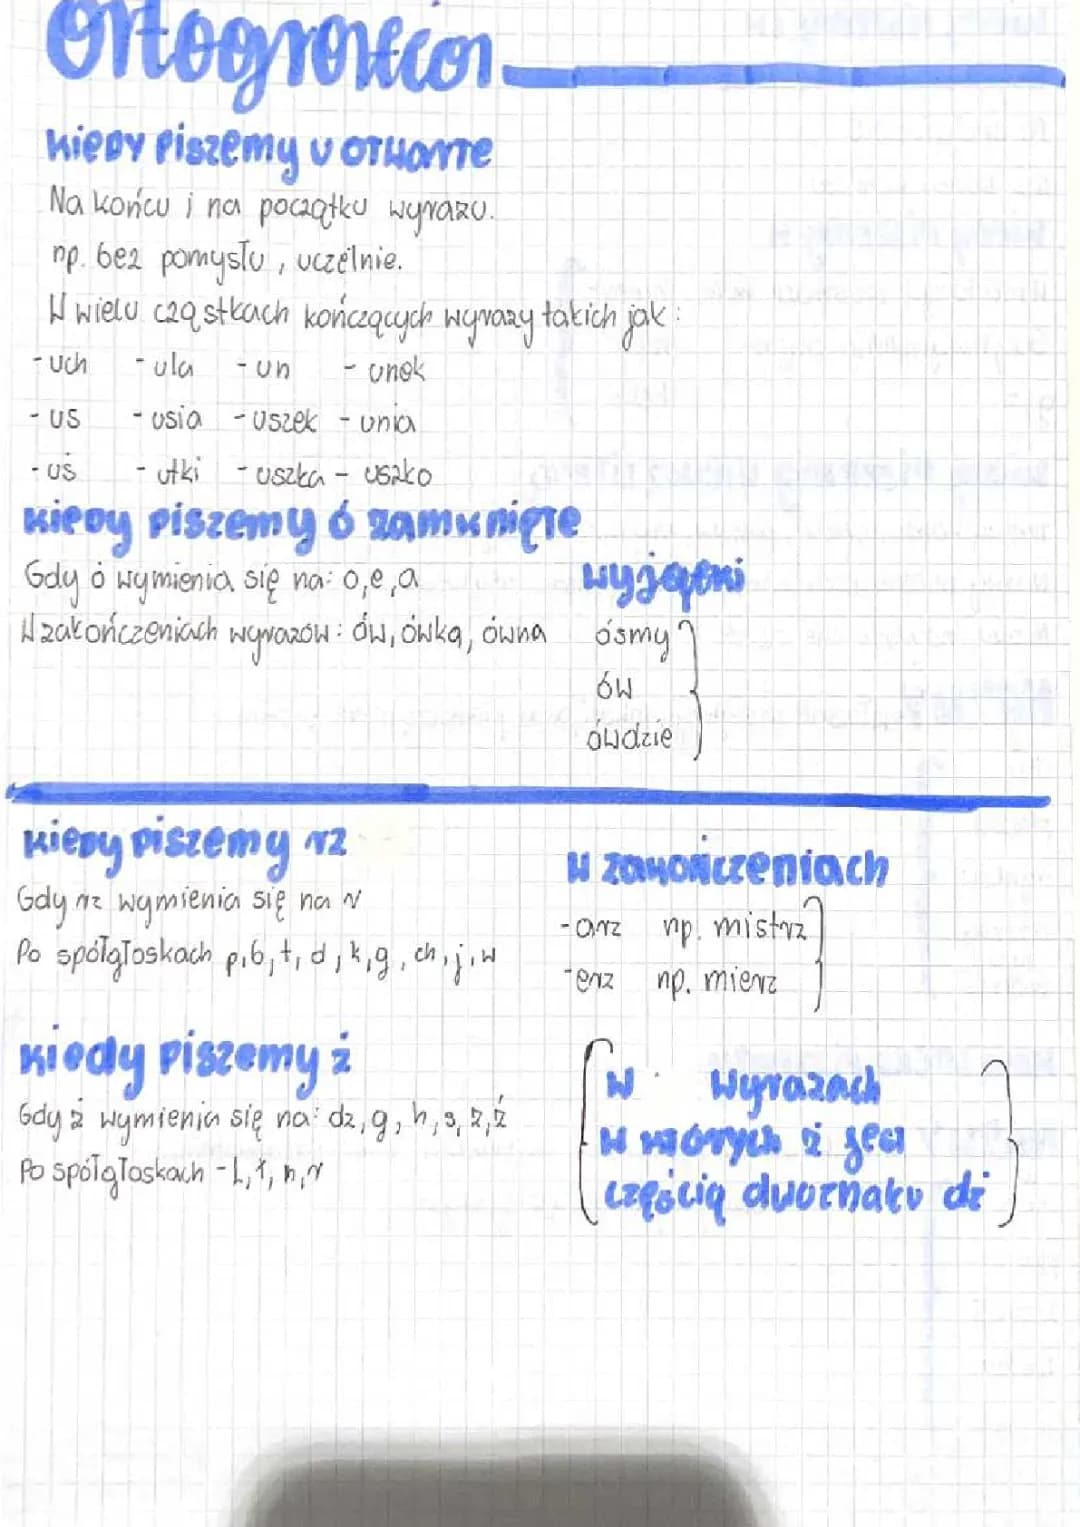 Ortografia
kiedy piszemy u otwarte
Na końcu i na początku wyrazu.
np. bez pomysłu, uczelnie.
W wielu cząstkach kończących wyrazy takich jak:
-uch -ula -un -unek
-us -usia -uszek -unia
-uś -utki -uszka -uszko
kiedy piszemy ó zamknięte
Gdy ó wymienia się na: o,e,a
W zakończeniach wyrazów: ów, ówka, ówna
wyjątki
ósmy
ów
ówdzie
kiedy piszemy rz
Gdy rz wymienia się na r
Po spółgłoskach p,b,t,d,k,g,ch,j,w
w zakończeniach
-arz np. mistrz
-erz np. mierz
kiedy piszemy ż
Gdy ż wymienia się na: dz,g,h,s,z,ź
Po spółgłoskach -L,ł,n,r
w wyrazach
w których ż jest
częścią dwuznaku dż